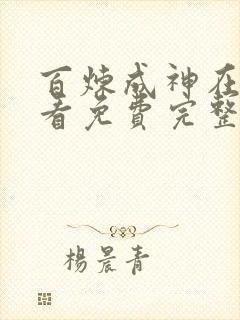 百炼成神在
看免费完整
楊晨青